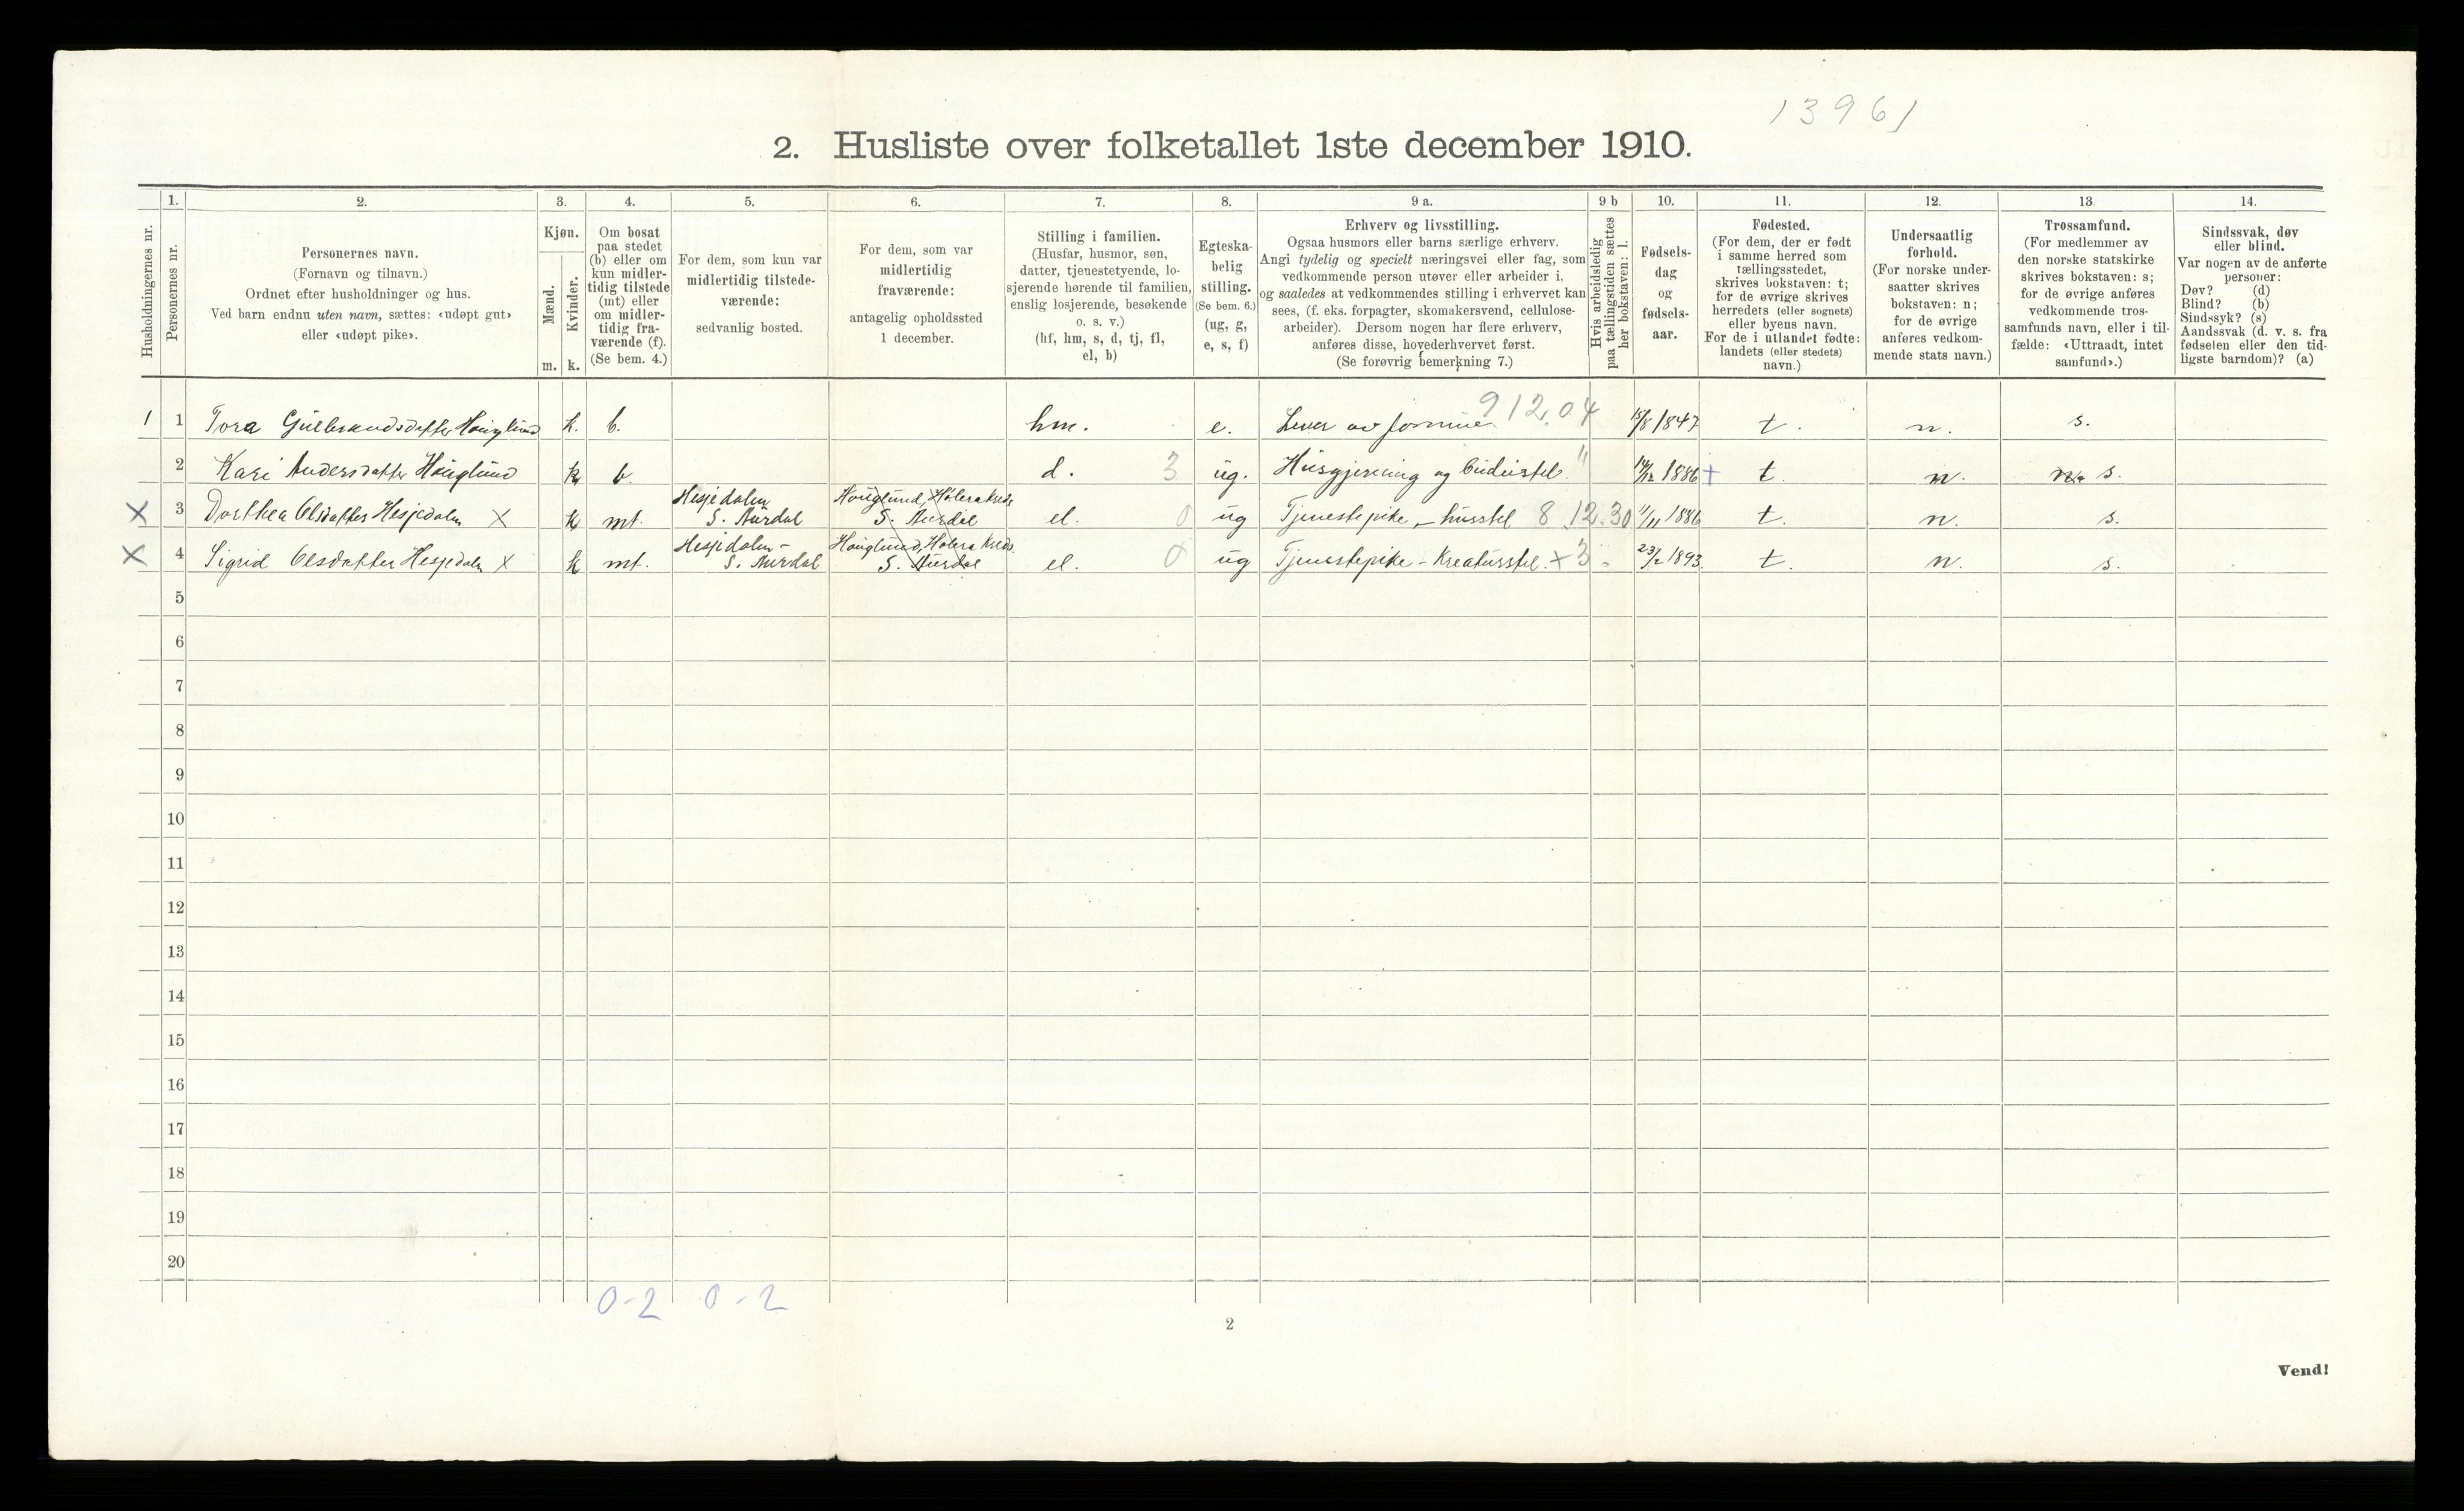 13961
2. Husliste over folketallet 1ste december 1910.
Husholdningernes nr.
1.
Personernes nr.
2.
Personernes navn.
(Fornavn og tilnavn.)
Ordnet efter husholdninger og hus.
Ved barn endnu uten navn, sættes: «udøpt gut»
eller «udøpt pike».
3.
Kjøn.
Mænd.
Kvinder.
m. k.
4.
Om bosat
paa stedet
(b) eller om
kun midler-
tidig tilstede
(mt) eller
om midler-
tidig fra-
værende (f).
(Se bem. 4.)
5.
For dem, som kun var
midlertidig tilstede-
værende:
sedvanlig bosted.
6.
For dem, som var
midlertidig
fraværende:
antagelig opholdssted
1 december.
7.
Stilling i familien.
(Husfar, husmor, søn,
datter, tjenestetyende, lo-
sjerende hørende til familien,
enslig losjerende, besøkende
o. s. v.)
(hf, hm, s, d, tj, fl,
el, b)
8.
Egteska-
belig
stilling.
(Se bem. 6.)
(ug, g,
e, s, f)
9 a.
Erhverv og livsstilling.
Ogsaa husmors eller barns særlige erhverv.
Angi tydelig og specielt næringsvei eller fag, som
vedkommende person utøver eller arbeider i,
og saaledes at vedkommendes stilling i erhvervet kan
sees, (f. eks. forpagter, skomakersvend, cellulose-
arbeider). Dersom nogen har flere erhverv,
anføres disse, hovederhvervet først.
(Se forøvrig bemerkning 7.)
9 b
Hvis arbeidsledig
paa tællingstiden sættes
her bokstaven: l.
10.
Fødsels-
dag
og
fødsels-
aar.
11.
Fødested.
(For dem, der er født
i samme herred som
tællingsstedet,
skrives bokstaven: t;
for de øvrige skrives
herredets (eller sognets)
eller byens navn.
For de i utlandet fødte:
landets (eller stedets)
navn.)
12.
Undersaatlig
forhold.
(For norske under-
saatter skrives
bokstaven: n;
for de øvrige
anføres vedkom-
mende stats navn.)
13
Trossamfund.
(For medlemmer av
den norske statskirke
skrives bokstaven: s;
for de øvrige anføres
vedkommende tros-
samfunds navn, eller i til-
fælde: «Uttraadt, intet
samfund».)
14.
Sindssvak, døv
eller blind.
Var nogen av de anførte
personer:
Døv? (d)
Blind? (b)
Sindssyk? (s)
Aandssvak (d. v. s. fra
fødselen eller den tid-
ligste barndom)? (a)
1 1 Tora Gulbrandsdatter Houglund k. b. hm. e. Lever av formue 912.04 15/8 1847 t. n. s.
2 Kari Andersdatter Houglund k b. d. 3 ug. Husgjerning og budeistel " 14/12 1886 + t. n. s.
X 3 Dorthea Olsdatter Hesjedalen X k mt. Hesjedalen S. Aurdal Houglund, Holera kreds S. Aurdal el. 0 ug Tjenestepike - husstel 8.12.30 11/11 1886 t. n. s.
X 4 Sigrid Olsdatter Hesjedalen X k mt. Hesjedalen - S. Aurdal Houglund, Holera Kreds S. Aurdal el. 0 ug Tjenestepike - Kreaturstel. x 3 23/2 1893 t. n. s.
5
6
7
8
9
10
11
12
13
14
15
16
17
18
19
20
0-2 0-2
2
Vend!